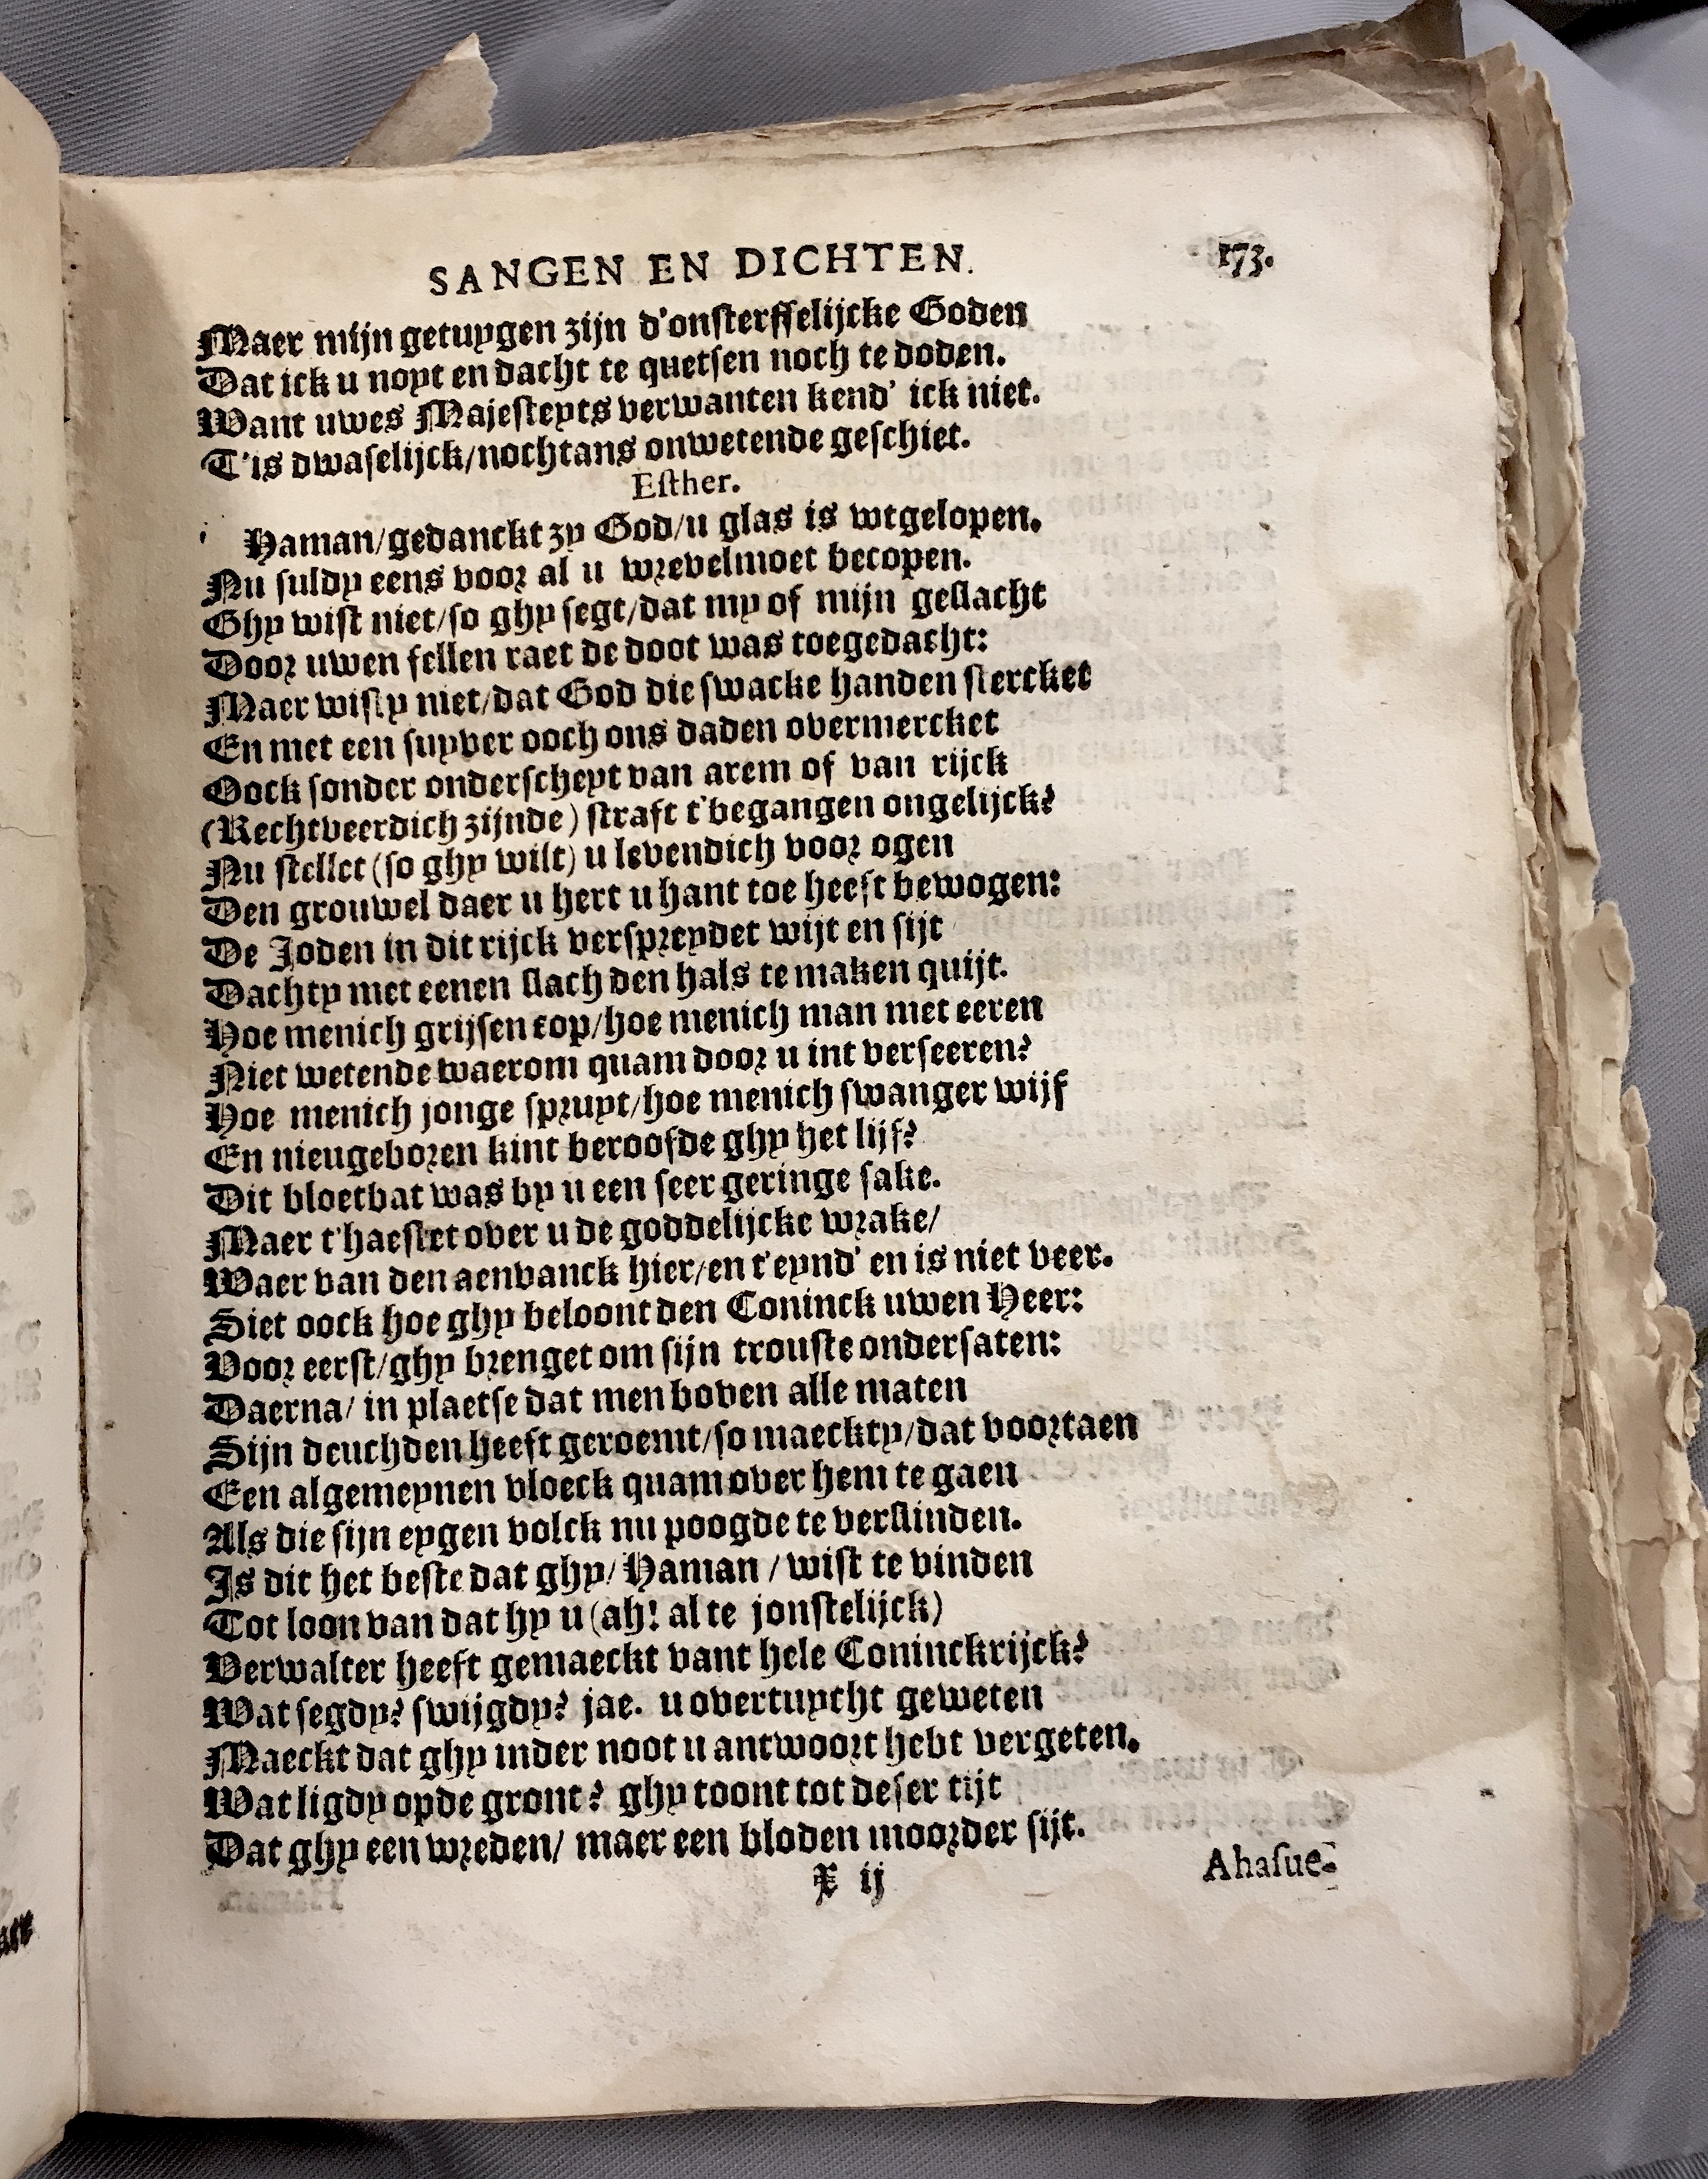 SANGEN EN DICHTEN. 173.
Maer mijn getuygen zijn d'onsterffelijcke Goden
Dat ick u noyt en dacht te quetsen noch te doden.
Want uwes Majesteyts verwanten kend' ick niet.
T'is dwaselijck/nochtans onwetende geschiet.
Esther.
Haman/gedanckt zy God/u glas is wtgelopen.
Nu suldy eens voor al u wrevelmoet becopen.
Ghy wist niet/so ghy segt/dat my of mijn geslacht
Door uwen fellen raet de doot was toegedacht:
Maer wisty niet/dat God die swacke handen stercket
En met een suyver ooch ons daden overmercket
Oock sonder onderscheyt van arem of van rijck
(Rechtveerdich zijnde) straft t'begangen ongelijck?
Nu stellet (so ghy wilt) u levendich voor ogen
Den grouwel daer u hert u hant toe heeft bewogen:
De Joden in dit rijck verspreydet wijt en sijt
Dachty met eenen slach den hals te maken quijt.
Hoe menich grijsen cop/hoe menich man met eeren
Niet wetende waerom quam door u int verseeren?
Hoe menich jonge spruyt/hoe menich swanger wijf
En nieugeboren kint beroofde ghy het lijf?
Dit bloetbat was by u een seer geringe sake.
Maer t'haestet over u de goddelijcke wrake/
Waer van den aenvanck hier/en t'eynd' en is niet veer.
Siet oock hoe ghy beloont den Coninck uwen Heer:
Voor eerst/ghy brenget om sijn trouste ondersaten:
Daerna/ in plaetse dat men boven alle maten
Sijn deuchden heeft geroemt/so maeckty/dat voortaen
Een algemeynen vloeck quam over hem te gaen
Als die sijn eygen volck nu poogde te verslinden.
Is dit het beste dat ghy/ Haman / wist te vinden
Tot loon van dat hy u (ah! al te jonstelijck)
Verwalter heeft gemaeckt vant hele Coninckrijck?
Wat segdy? swijgdy? jae. u overtuycht geweten
Maeckt dat ghy inder noot u antwoort hebt vergeten.
Wat ligdy opde gront? ghy toont tot deser tijt
Dat ghy een wreden/ maer een bloden moorder sijt.
X ij Ahasue-